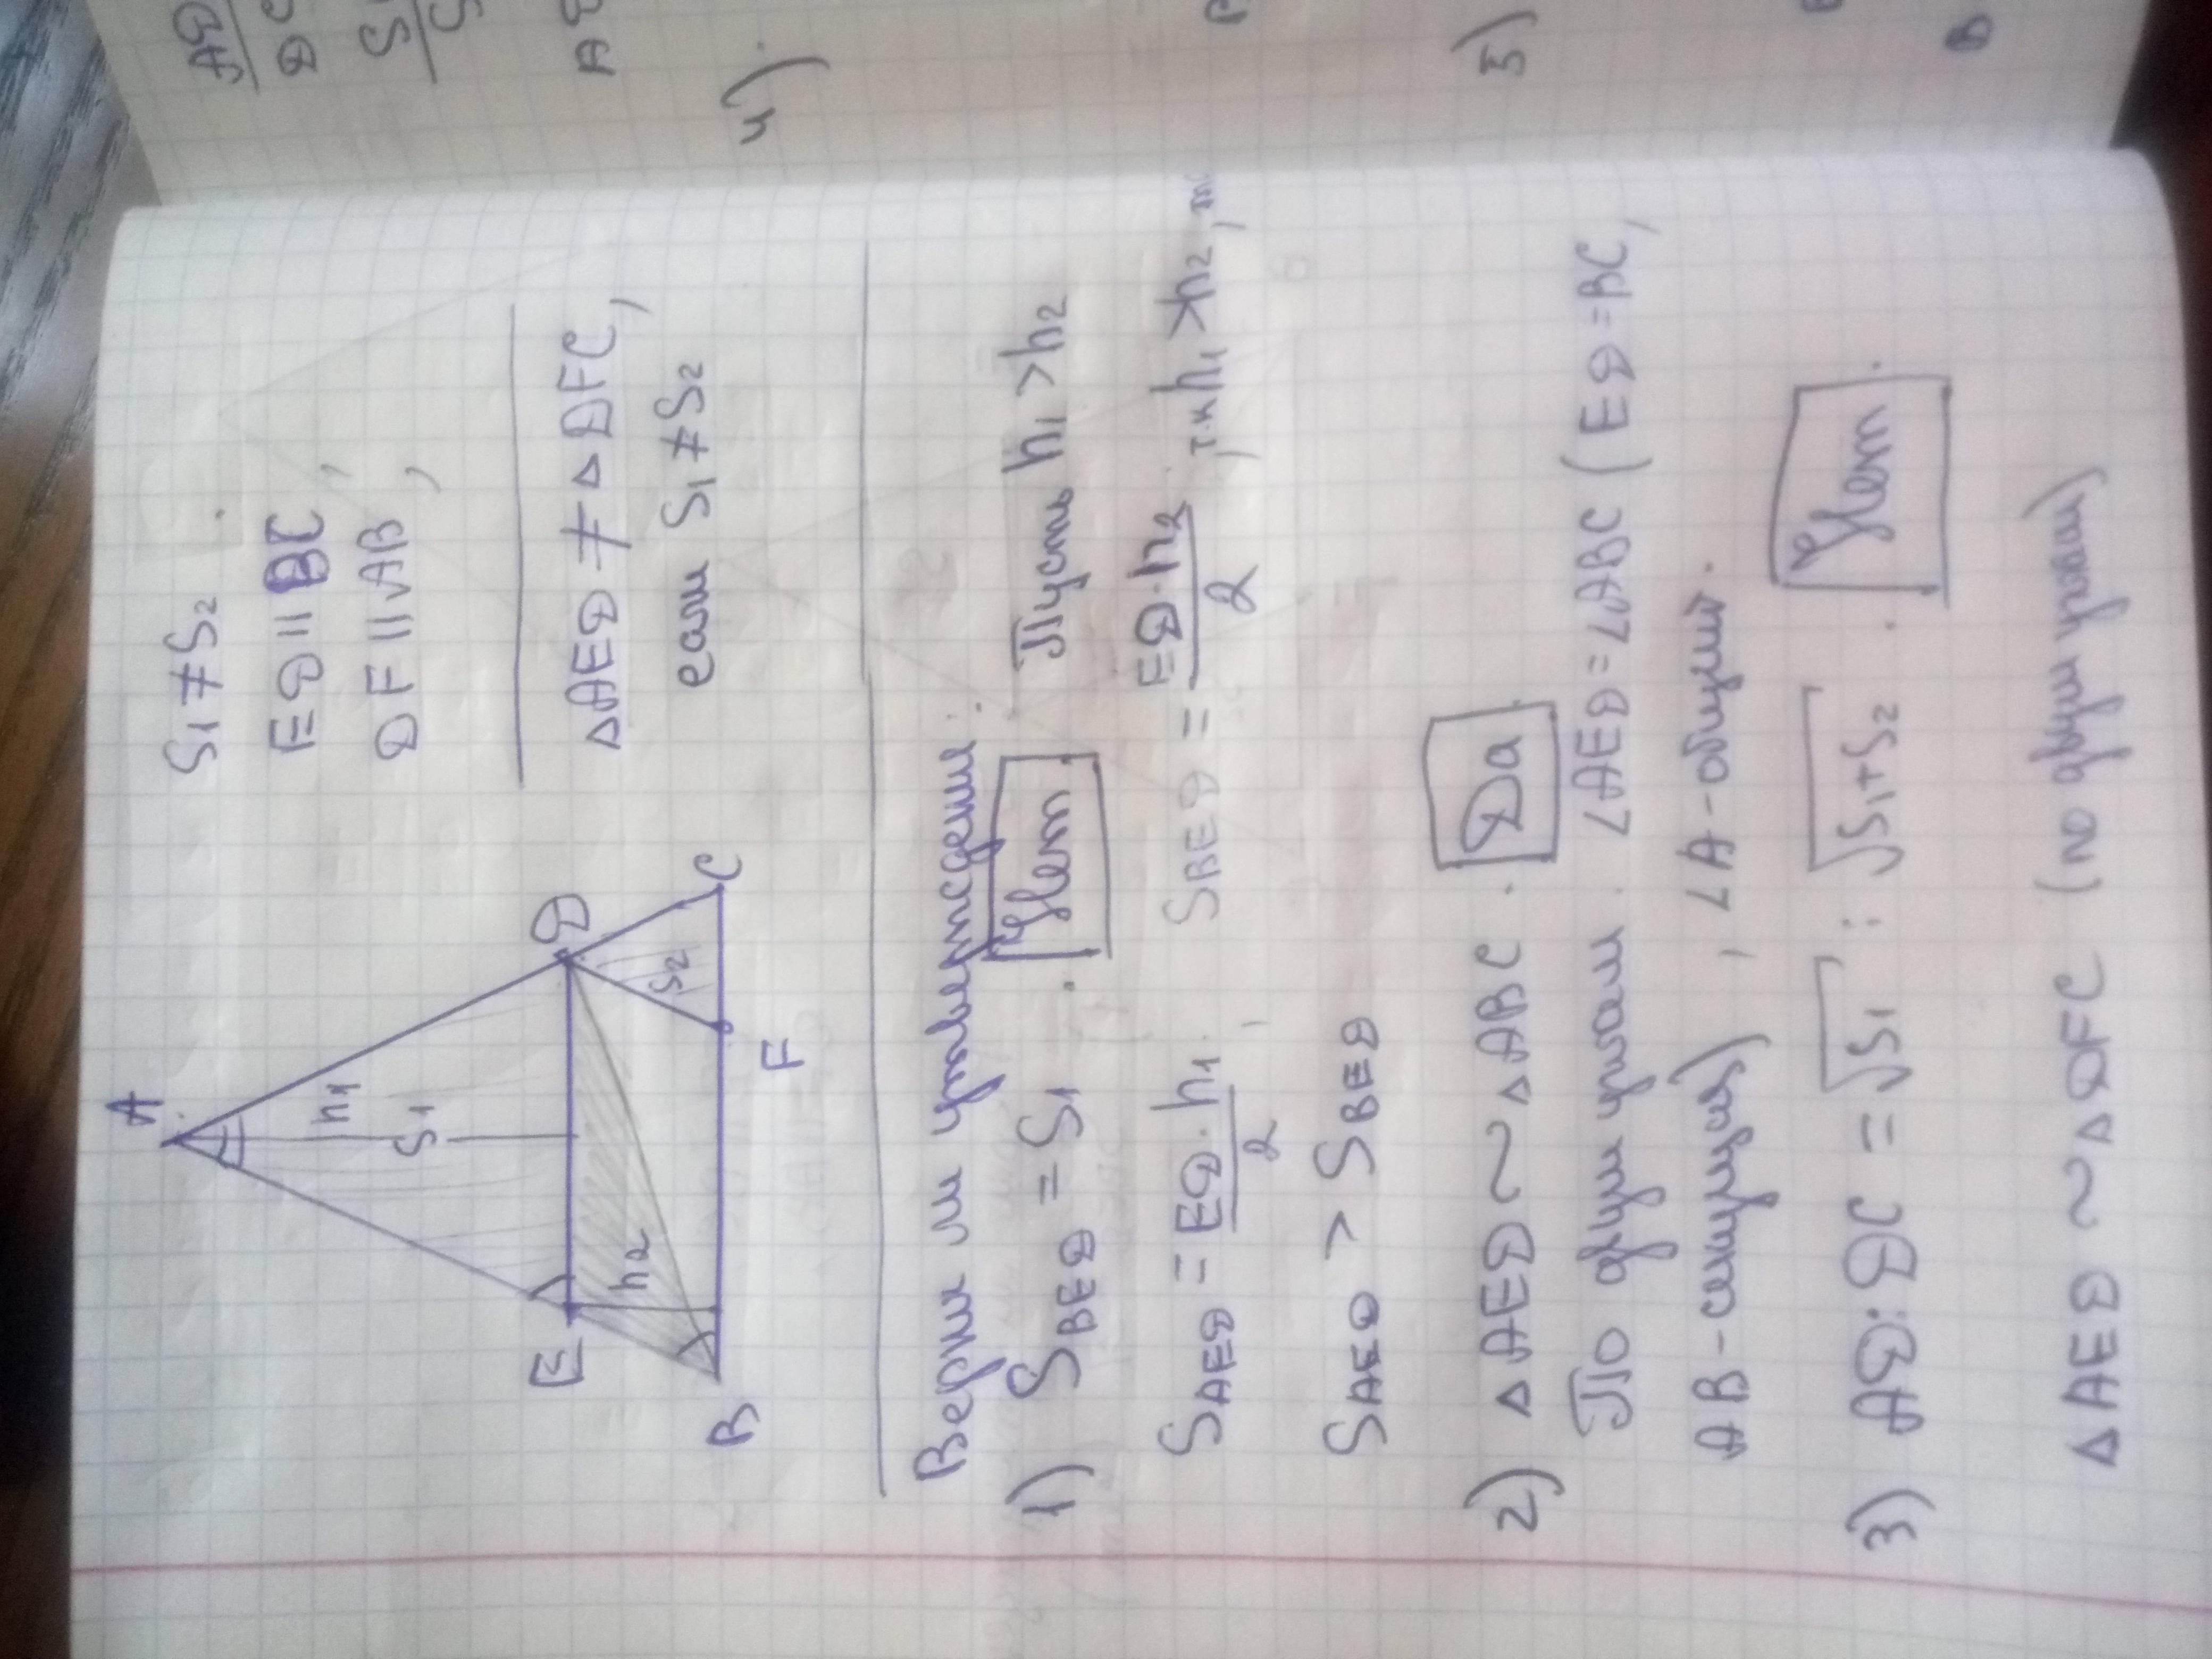 S₁ ≠ S₂.
ED || BC,
DF || AB,
△AED ≠ △DFC,
если S₁ ≠ S₂
A
h₁
S₁
E
D
h₂
S₂
B
F
C
Верны ли утверждения:
1) S_BED = S₁. Нет. Пусть h₁ > h₂
S_AED = ED·h₁/2, S_BED = ED·h₂/2, т.к h₁ > h₂, то
S_AED > S_BED
2) △AED ~ △ABC. Да
По двум углам. ∠AED = ∠ABC (ED = BC,
AB - секущая), ∠A - общий.
3) AD:DC = √S₁ : √S₁+S₂. Нет.
△AED ~ △DFC (по двум углам)
4).
5)